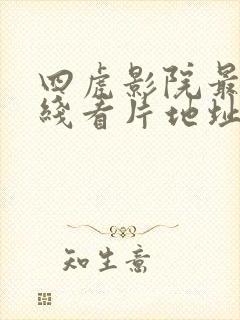 四虎影院最
线看片地址
知生意